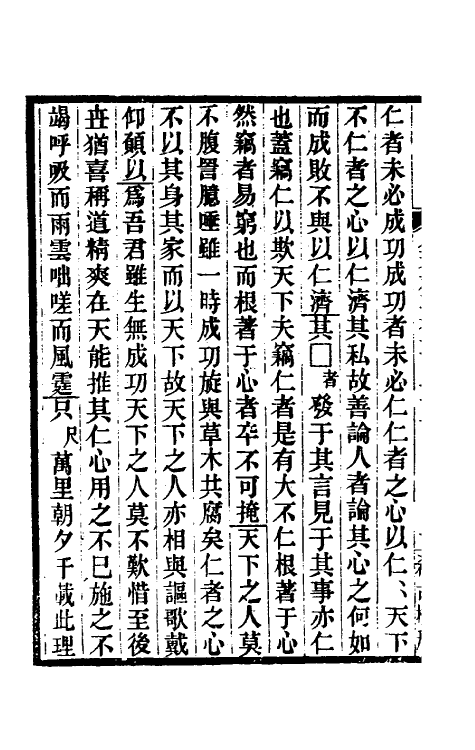 仁者未必成功成功者未必仁仁者之心以仁、天下
不仁者之心以仁濟其私故善論人者論其心之何如
而成敗不與以仁濟其□者發于其言見于其事亦仁
也蓋竊仁以欺天下夫竊仁者是有大不仁根著于心
然竊者易窮也而根著于心者卒不可掩天下之人莫
不腹詈臆唾雖一時成功旋與草木共腐矣仁者之心
不以其身其家而以天下故天下之人亦相與謳歌戴
仰願以爲吾君雖生無成功天下之人莫不歎惜至後
世猶喜稱道精爽在天能推其仁心用之不已施之不
竭呼吸而雨雲咄嗟而風霆只尺萬里朝夕千載此理